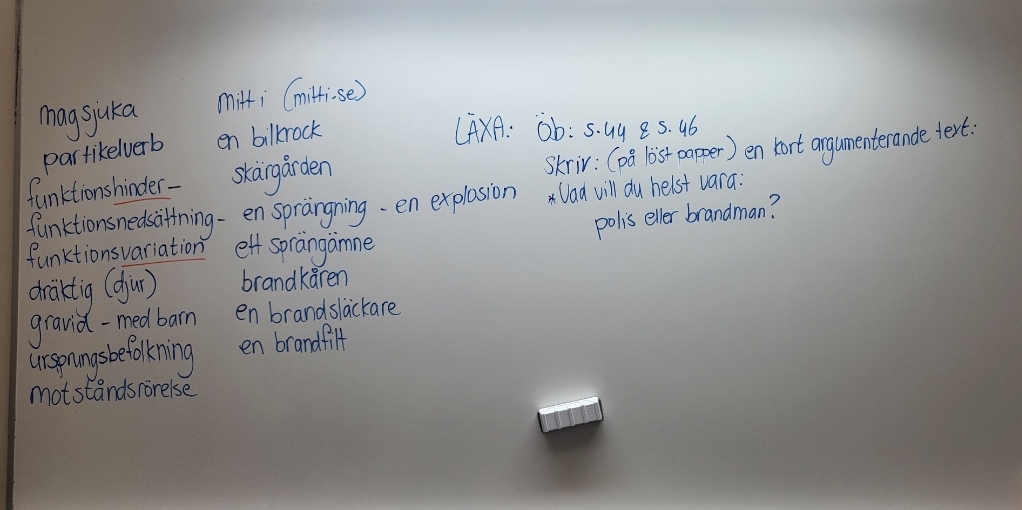 magsjuka
partikelverb
funktionshinder-
funktionsnedsättning-
funktionsvariation
dräktig (djur)
gravid - med barn
ursprungsbefolkning
motståndsrörelse
mitt i (mitti-se)
en bilkrock
skärgården
en sprängning - en explosion
ett sprängämne
brandkåren
en brandsläckare
en brandfilt
LÄXA: Öb: s.44 & s. 46
Skriv: (på löst papper) en kort argumenterande text:
*Vad vill du helst vara:
polis eller brandman?